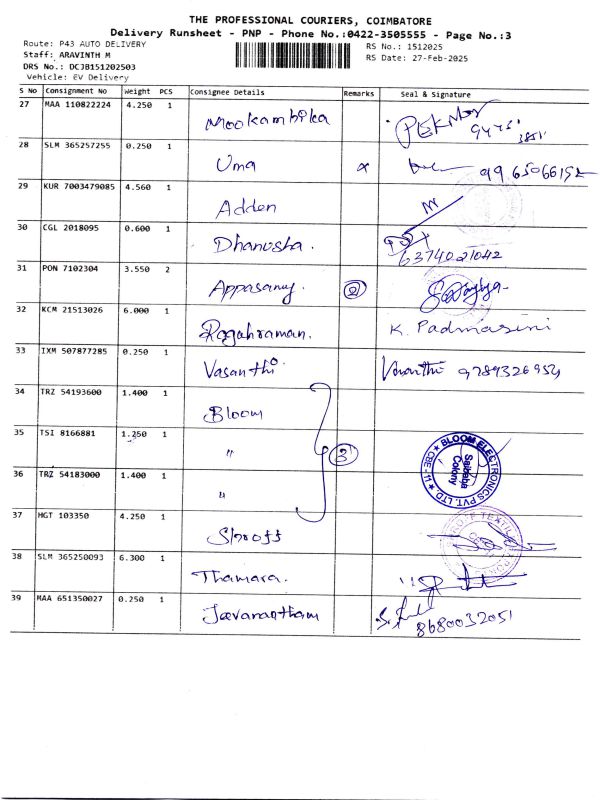 THE PROFESSIONAL COURIERS, COIMBATORE
Delivery Runsheet - PNP - Phone No.:0422-3505555 - Page No.:3
Route: P43 AUTO DELIVERY RS No.: 1512025
Staff: ARAVINTH M RS Date: 27-Feb-2025
DRS No.: DCJB151202503
Vehicle: EV Delivery
S No Consignment No Weight PCS Consignee Details Remarks Seal & Signature
27 MAA 110822224 4.250 1 Mookambika
28 SLM 365257255 0.250 1 Uma
29 KUR 7003479085 4.560 1 Adden
30 CGL 2018095 0.600 1 Dhanusha. 6374021042
31 PON 7102304 3.550 2 Appasamy. 2
32 KCM 21513026 6.000 1 Ragahraman. K. Padmasini
33 IXM 507877285 0.250 1 Vasanthi Vasanthi 9789326954
34 TRZ 54193600 1.400 1 Bloom
35 TSI 8166881 1.250 1 " 3 BLOOM ELECTRONICS PVT. LTD. CBE-11 Saibaba Colony
36 TRZ 54183000 1.400 1 "
37 HGT 103350 4.250 1 Shroff
38 SLM 365250093 6.300 1 Thamara.
39 MAA 651350027 0.250 1 Jeevanantham 8680032051